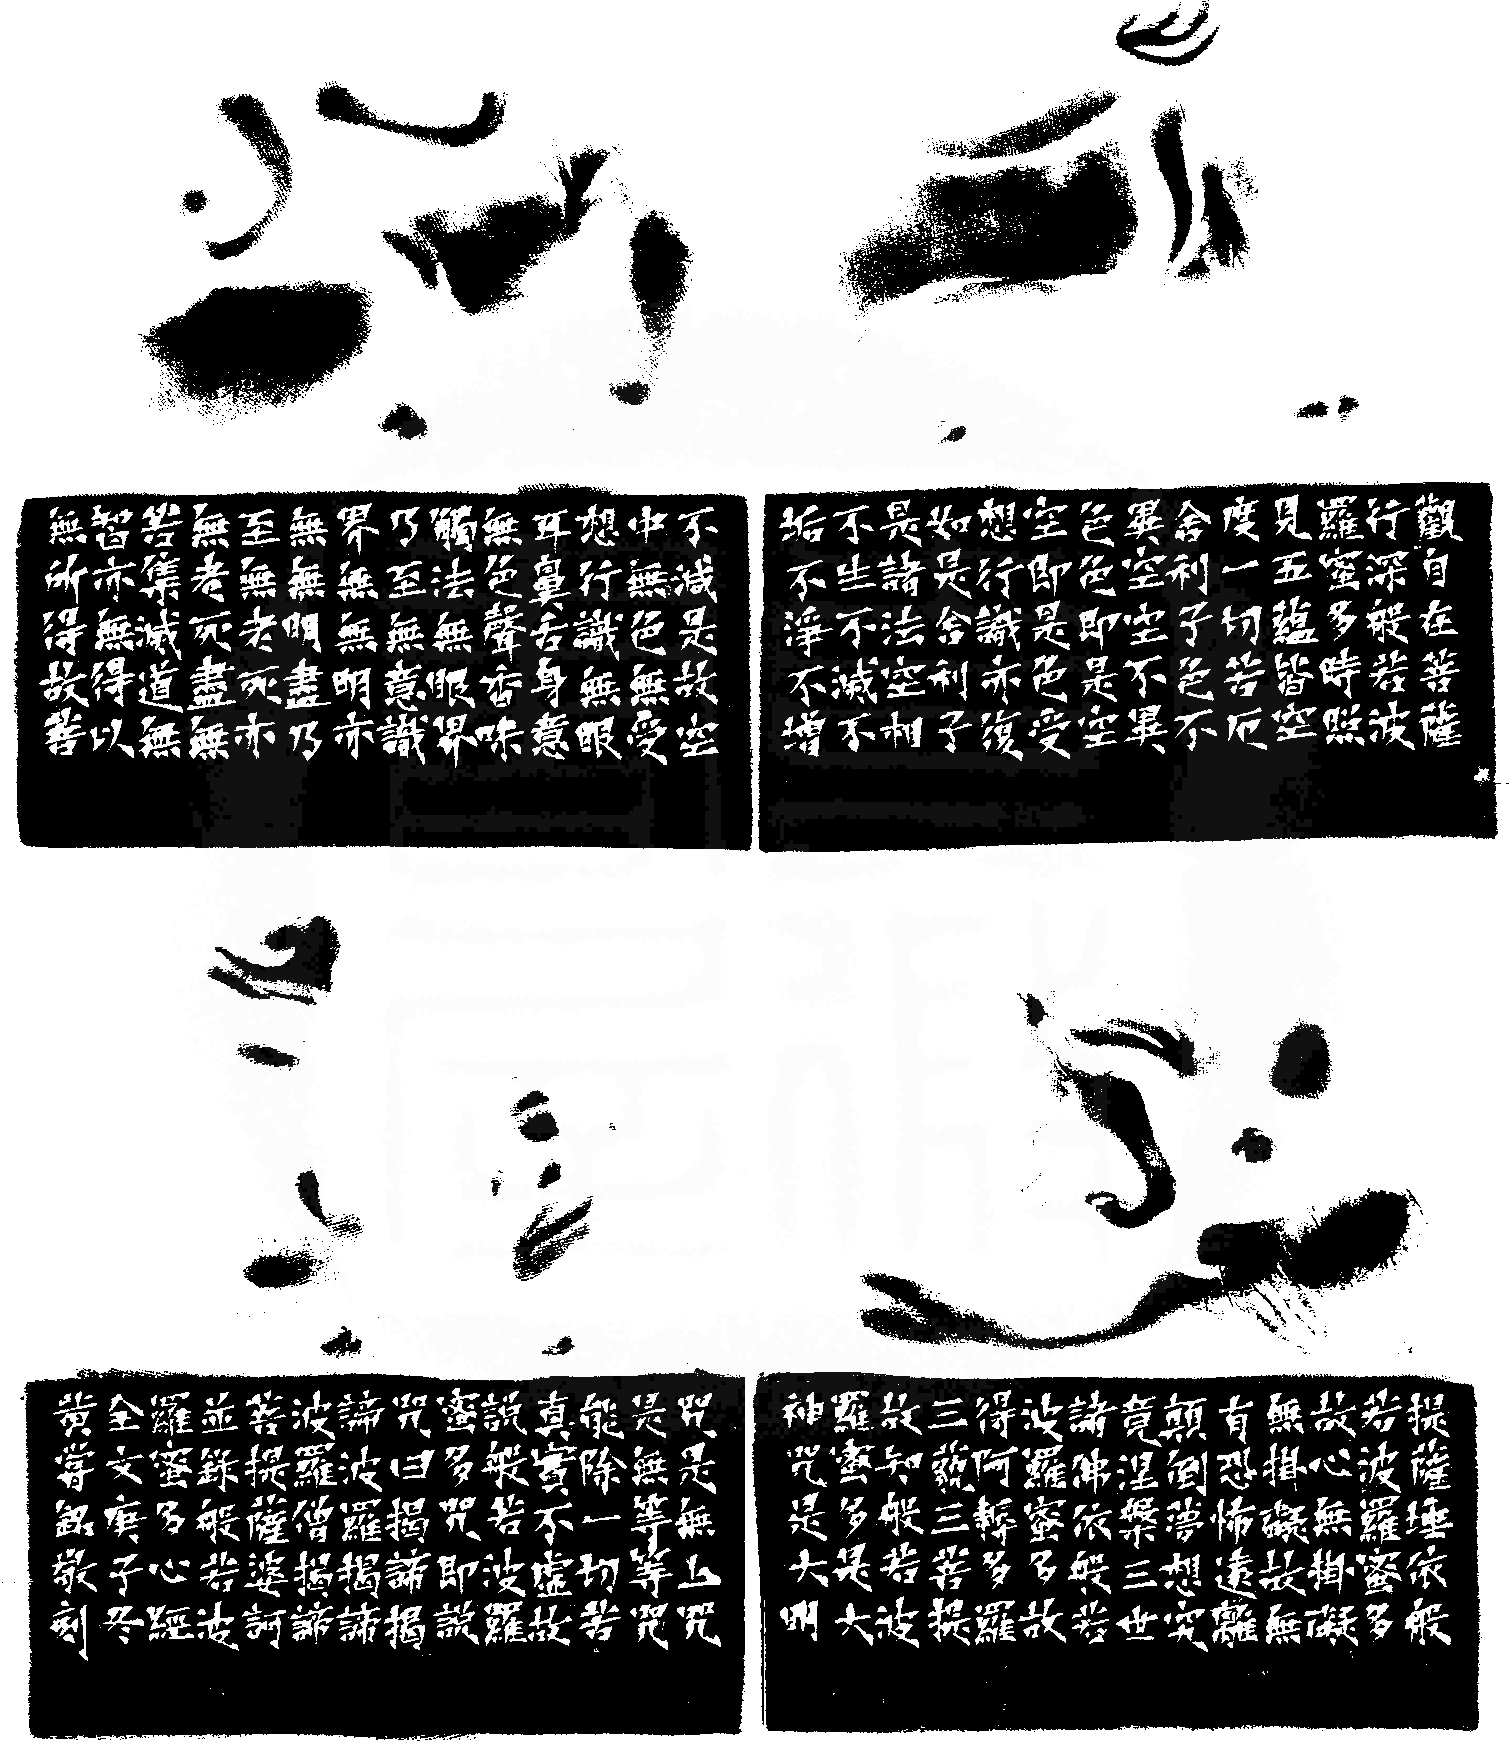 觀自在菩薩
行深般若波
羅蜜多時照
見五蘊皆空
度一切苦厄
舍利子色不
異空空不異
色色即是空
空即是色受
想行識亦復
如是舍利子
是諸法空相
不生不滅不
垢不淨不增
不減是故空
中無色無受
想行識無眼
耳鼻舌身意
無色聲香味
觸法無眼界
乃至無意識
界無無明亦
無無明盡乃
至無老死亦
無老死盡無
苦集滅道無
智亦無得以
無所得故菩
提薩埵依般
若波羅蜜多
故心無掛礙
無掛礙故無
有恐怖遠離
顛倒夢想究
竟涅槃三世
諸佛依般若
波羅蜜多故
得阿耨多羅
三藐三菩提
故知般若波
羅蜜多是大
神咒是大明
咒是無上咒
是無等等咒
能除一切苦
真實不虛故
說般若波羅
蜜多咒即說
咒曰揭諦揭
諦波羅揭諦
波羅僧揭諦
菩提薩婆訶
並錄般若波
羅蜜多心經
全文庚子冬
黃嘗銘敬刻